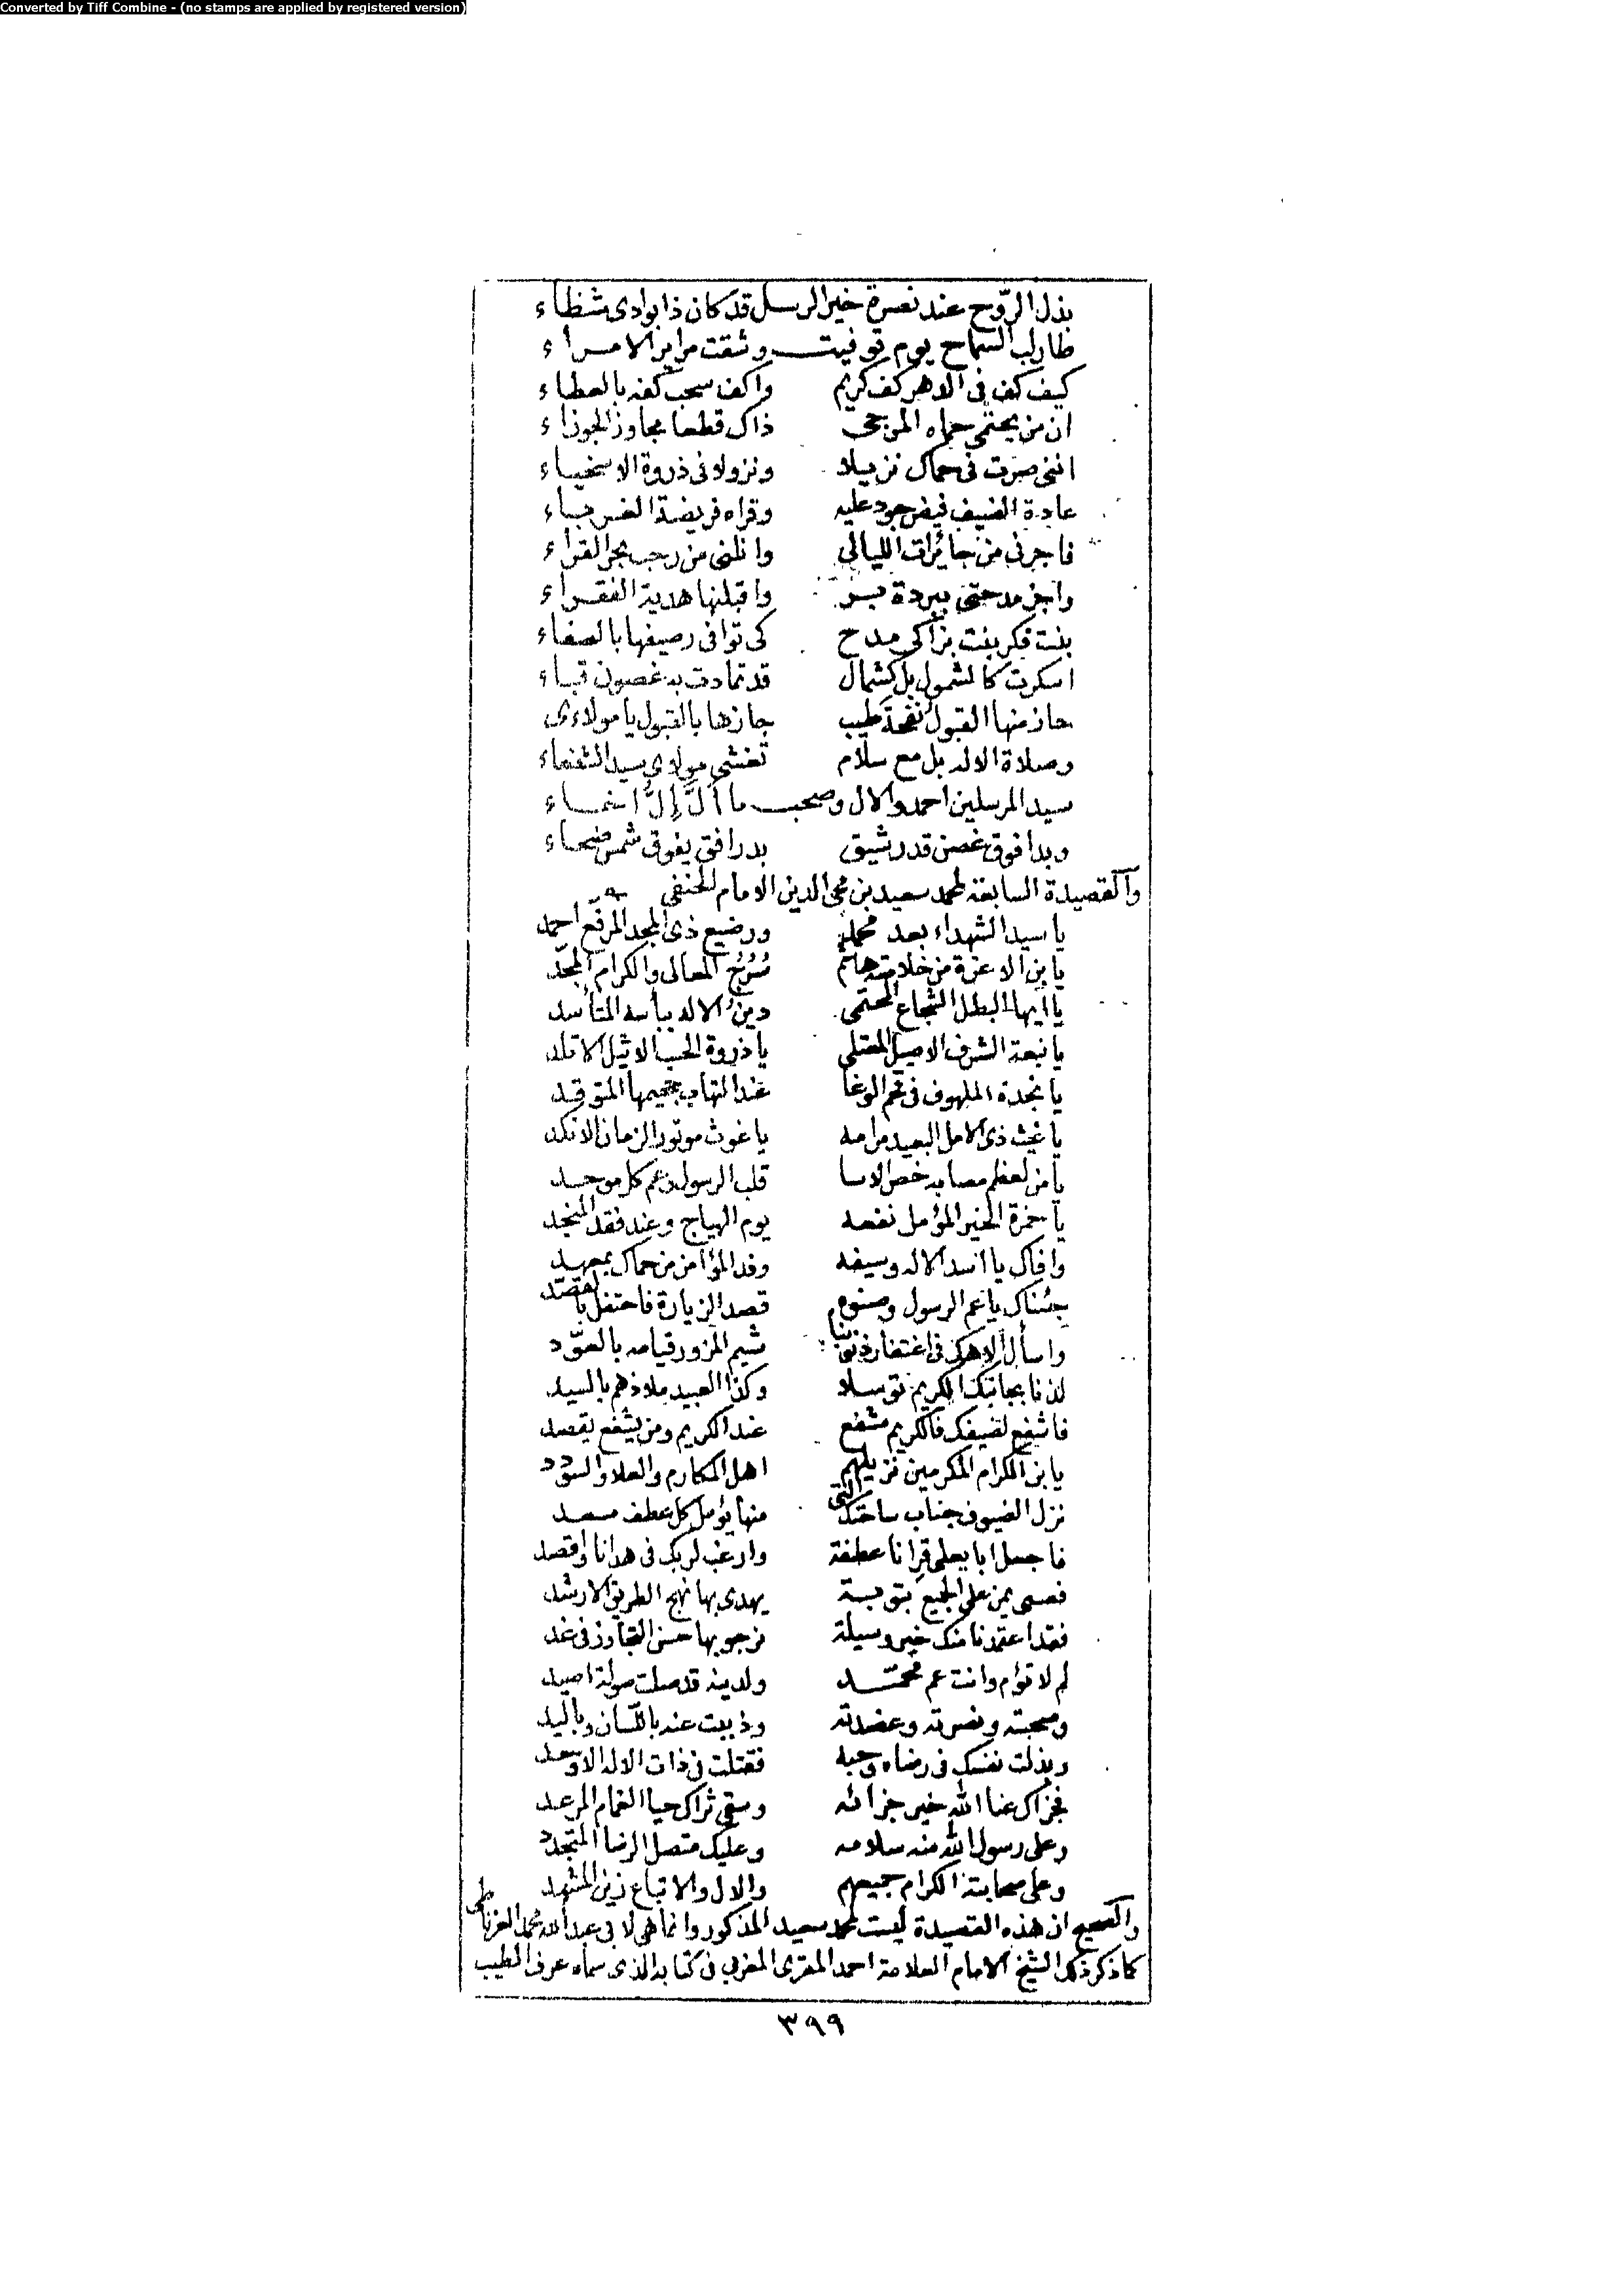 Converted by Tiff Combine - (no stamps are applied by registered version)
بذل الرّوح عند نصرة خير الرسل قد كان ذا بوادى شظاء
طار لب السماح يوم توفيت وشقت مراير الامراء
كيف كف فى الدهر كف كريم واكف سحب كفه بالعطاء
ان من يحتمى حماه المرجى ذاك قطعا مجاوز الجوزاء
اننى صرت فى حماك نزيلا ونزولا فى ذروة الاسخياء
عادة الضيف فيض جود عليه وقراه فريضة الغرباء
فاجرنى من جائرات الليالى وانلنى من رحب بحر القراء
واجز مدحتى ببردة بر واقبلنها هدية الفقراء
بنت فكر بزاكى مدح كى توافى رصيفها بالصفاء
اسكرت كالشمول بل كشمال قد تمادت به غصون قباء
حاز منها القبول نفحة طيب جازها بالقبول يا مولاءى
وصلاة الاله بل مع سلام تغشى مولاى سيد الشفعاء
سيد المرسلين احمد والال وصحب ما
وبدا فوق غصن قد رشيق بدر افق يفوق شمس ضحاء
والقصيدة السابقة لمحمد سعيد بن محى الدين الامام الحنفى
يا سيد الشهداء بعد محمد ورضيع ذى المجد المرفّع احمد
يا بن الاعزة من خلاصة هاشم سُرُجُ المعالى والكرام المجّد
يا ايها البطل الشجاع المحتمى دينُ الاله ببأسه المتأسد
يا نبعة الشرف الاصيل المعتلى يا ذروة الحسب الاثيل الاتلد
يا نجدة الملهوف فى قحم الوغا عند التهاب جحيمها المتوقد
يا غيث ذى الامل البعيد مرامه يا غوث موتور الزمان الانكد
يا من لعظم مصابه خص الاسا قلب الرسول وعم كل موحد
يا حمزة الخير المؤمل نفعه يوم الهياج وعند فقد المنجد
وافاك يا اسد الاله وسيفه وفد المؤا من من حماك بمعهد
جئناك يا عم الرسول وصنوه قصد الزيارة فاحتفل بالقصّد
واسأل الاهك فى اغتفار ذنوبنا شيم المزور قيامه بالعوّد
لذنا بجانبك الكريم توسلا وكذا العبيد ملاذهم بالسيد
فاشفع لضيفك فالكريم مشفع عند الكريم ومن يشفع يقصد
يا بن الكرام المكرمين نزيلهم اهل المكارم والعلا والسؤدد
نزل الضيوف جناب ساحتك التى منها يؤمل كل عطف مسعد
فاجعل ابا يعلى قرانا عطفة وارغب لربك فى هدانا واقصد
فعسى يمن على الجميع بتوبة يهدى بها نهج الطريق الارشد
فقد اعتمدنا منك خير وسيلة نرجو بها حسن التجاوز فى غد
لم لا تؤام وانت عم محمّد ولدينه قد صلت صولة اصيد
وصحبته ونصرته وعضدته وذببت عنه باللسان وباليد
وبذلت نفسك فى رضاه وحبه فقتلت فى ذات الاله الاوحد
فجزاك عنا الله خير جزائه وسقى ثراك حيا الغمام المرعد
وعلى رسول الله منه سلامه وعليك متصل الرضا المتجدد
وعلى صحابته الكرام جميعهم والال والاتباع زين المشهد
والصحيح ان هذه القصيدة ليست لمحمد سعيد المذكور وانما هى لابى عبد الله محمد الغرناطى
كما ذكر ذلك الشيخ الامام العلامة احمد المقرى المغربى فى كتابه الذى سماه عرف الطيب
٣٩٩